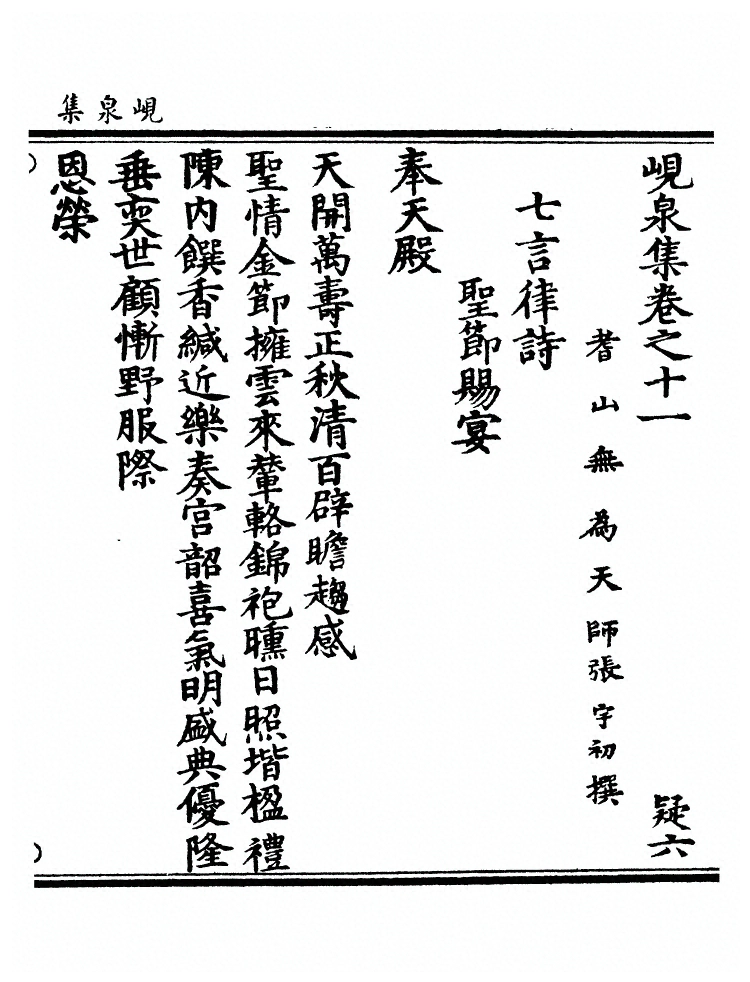 峴泉集
峴泉集卷之十一 疑六
耆山無為天師張宇初撰
七言律詩
聖節賜宴
奉天殿
天開萬壽正秋清百辟瞻趨感
聖情金節擁雲來輦輅錦袍曛日照堦楹禮
陳內饌香緘近樂奏宮韶喜氣明盛典優隆
垂奕世顧慚野服際
恩榮